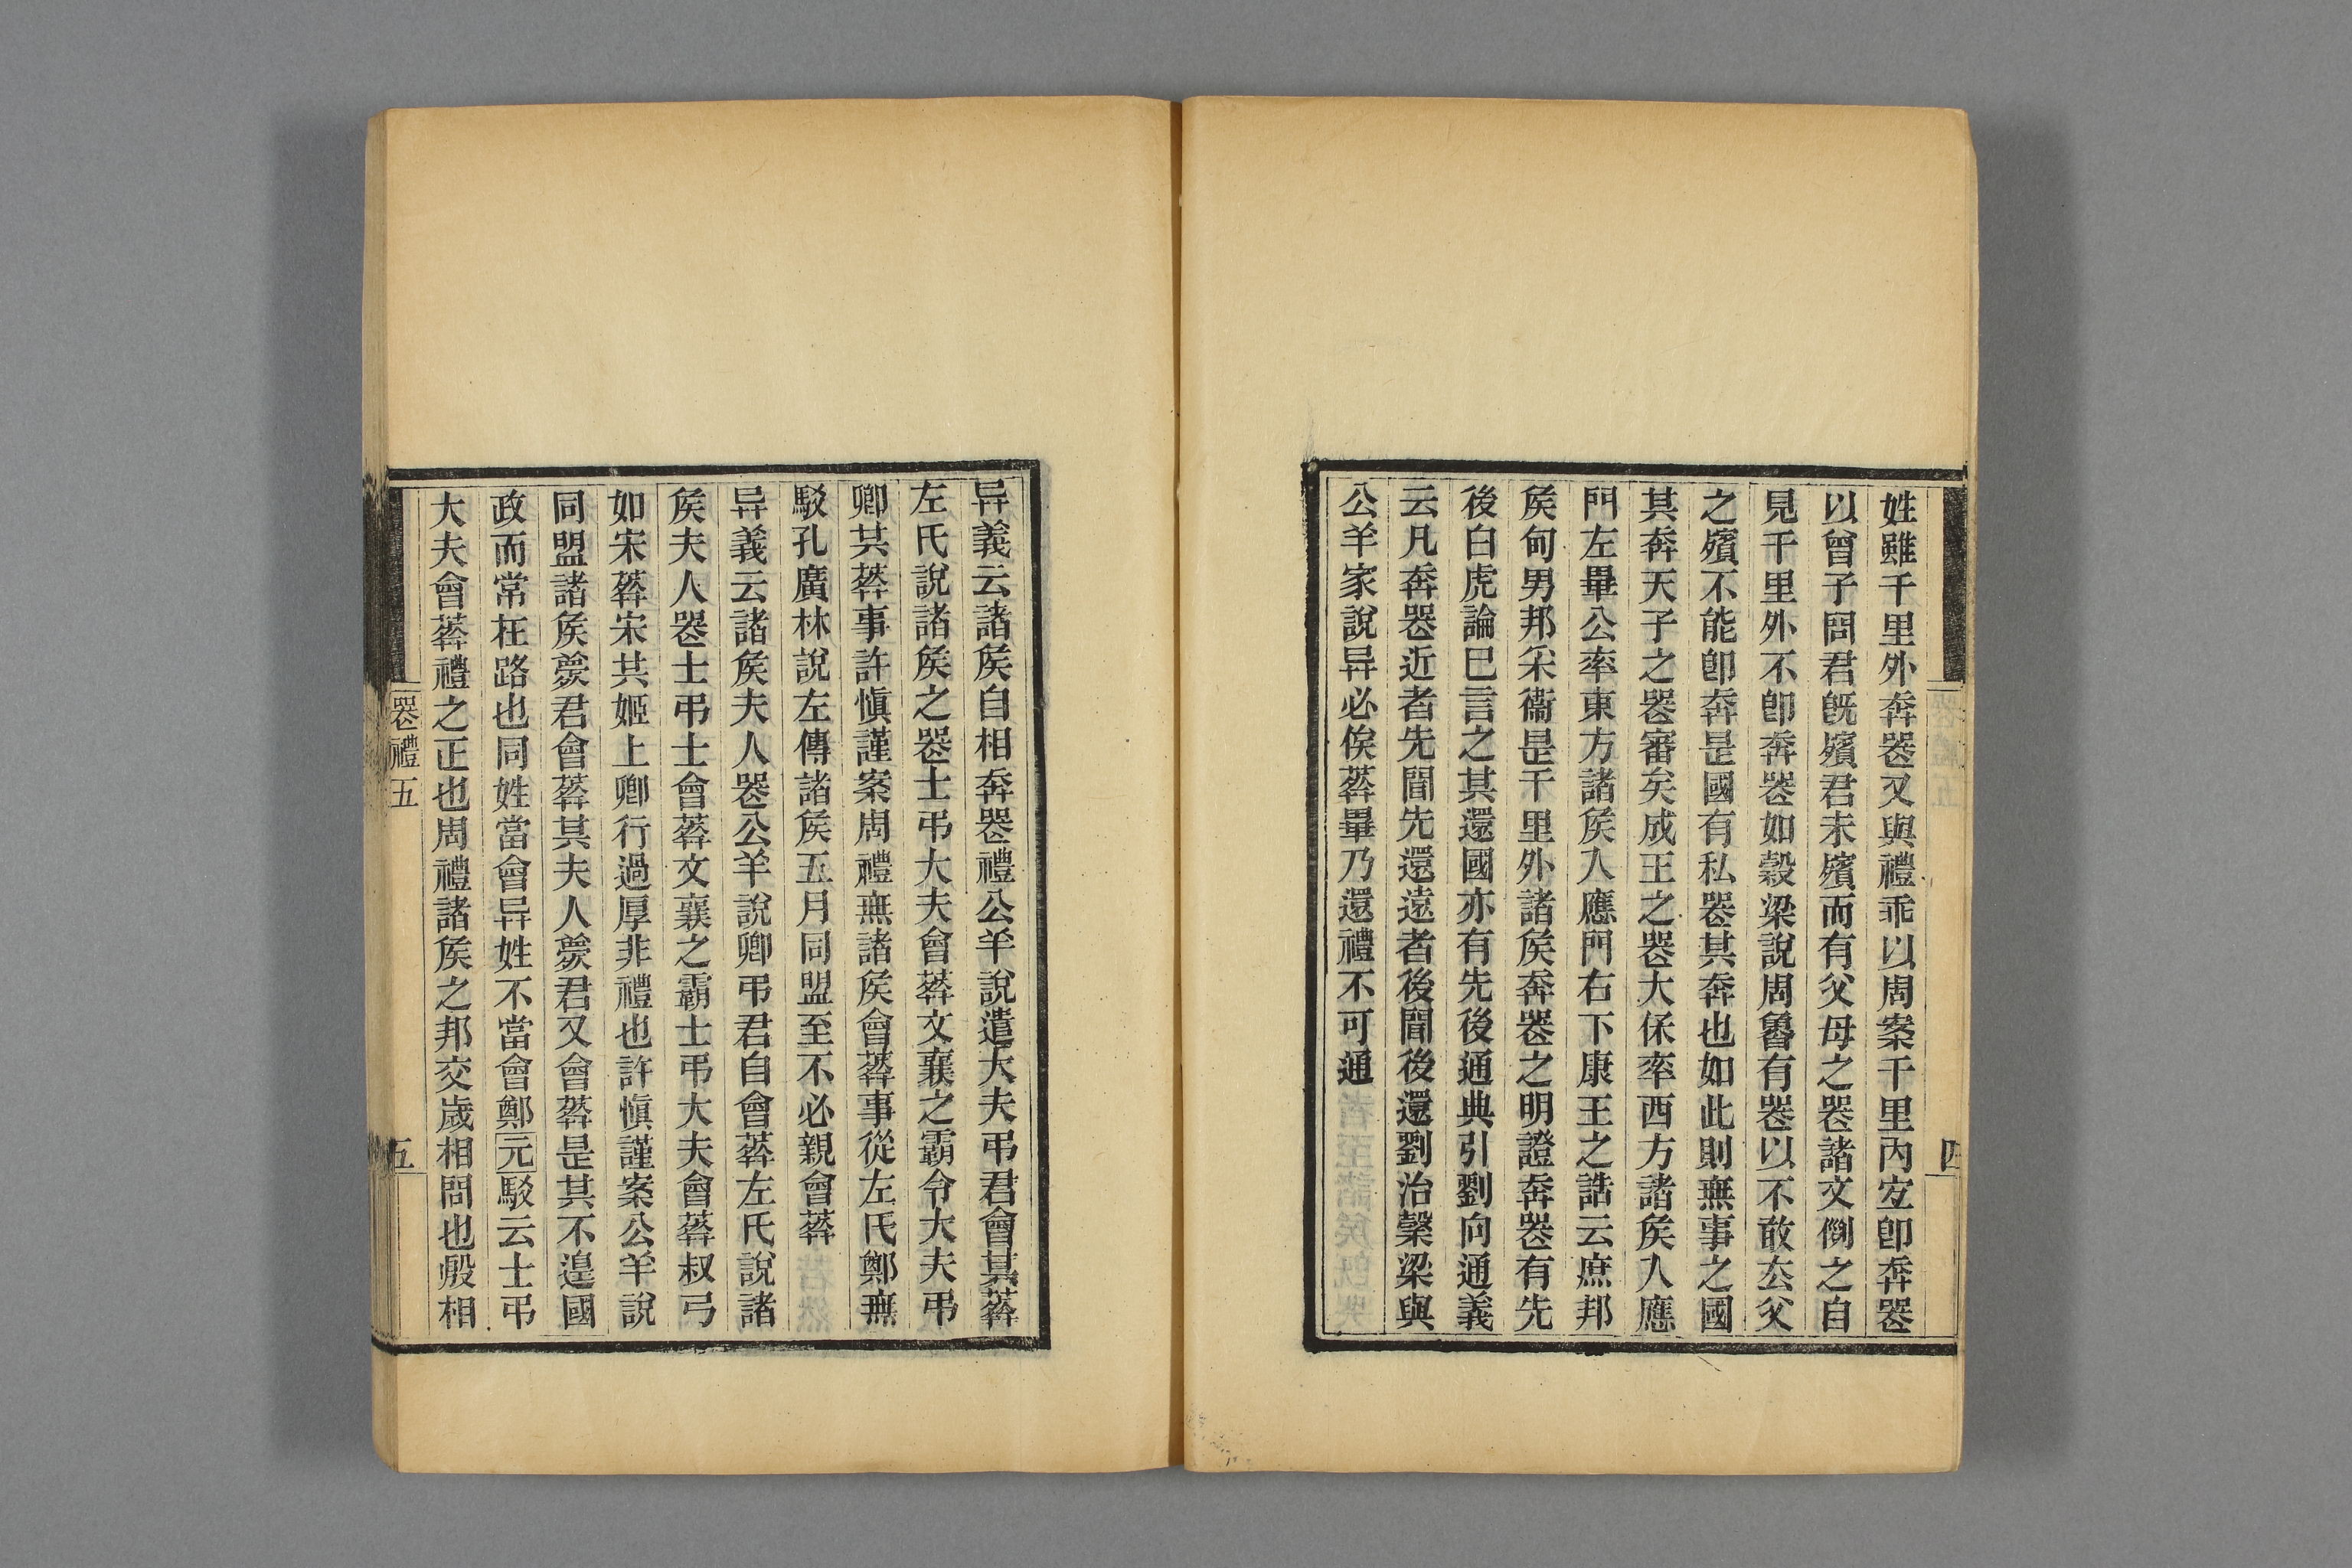 姓雖千里外奔喪又與禮乖以周案千里內宜卽奔喪
以曾子問君旣殯君未殯而有父母之喪諸文例之自
見千里外不卽奔喪如穀梁說周魯有喪以不敢厺父
之殯不能卽奔是國有私喪其奔也如此則無事之國
其奔天子之喪審矣成王之喪大保率西方諸矦入應
門左畢公率東方諸矦入應門右下康王之誥云庶邦
矦甸男邦采衞是千里外諸矦奔喪之明證奔喪有先
後白虎論巳言之其還國亦有先後通典引劉向通義
云凡奔喪近者先聞先還遠者後聞後還劉治穀梁與
公羊家說异必俟葬畢乃還禮不可通
四
异義云諸矦自相奔喪禮公羊說遣大夫弔君會其葬
左氏說諸矦之喪士弔大夫會葬文襄之霸令大夫弔
卿其葬事許愼謹案周禮無諸矦會葬事從左氏鄭無
駁孔廣林說左傳諸矦五月同盟至不必親會葬
异義云諸矦夫人喪公羊說卿弔君自會葬左氏說諸
矦夫人喪士弔士會葬文襄之霸士弔大夫會葬叔弓
如宋葬宋共姬上卿行過厚非禮也許愼謹案公羊說
同盟諸矦薨君會葬其夫人薨君又會葬是其不遑國
政而常在路也同姓當會异姓不當會鄭元駁云士弔
大夫會葬禮之正也周禮諸矦之邦交歲相問也殷相
喪禮五
五